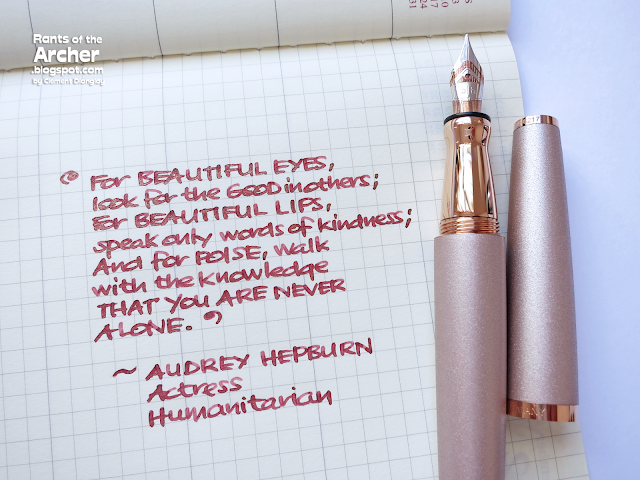 Rants of the
Archer
.blogspot.com
by Clement Dionglay
‘ For BEAUTIFUL EYES,
look for the GOOD in others;
For BEAUTIFUL LIPS,
speak only words of kindness;
And for POISE, walk
with the knowledge
THAT YOU ARE NEVER
ALONE. ’
~ AUDREY HEPBURN
Actress
Humanitarian